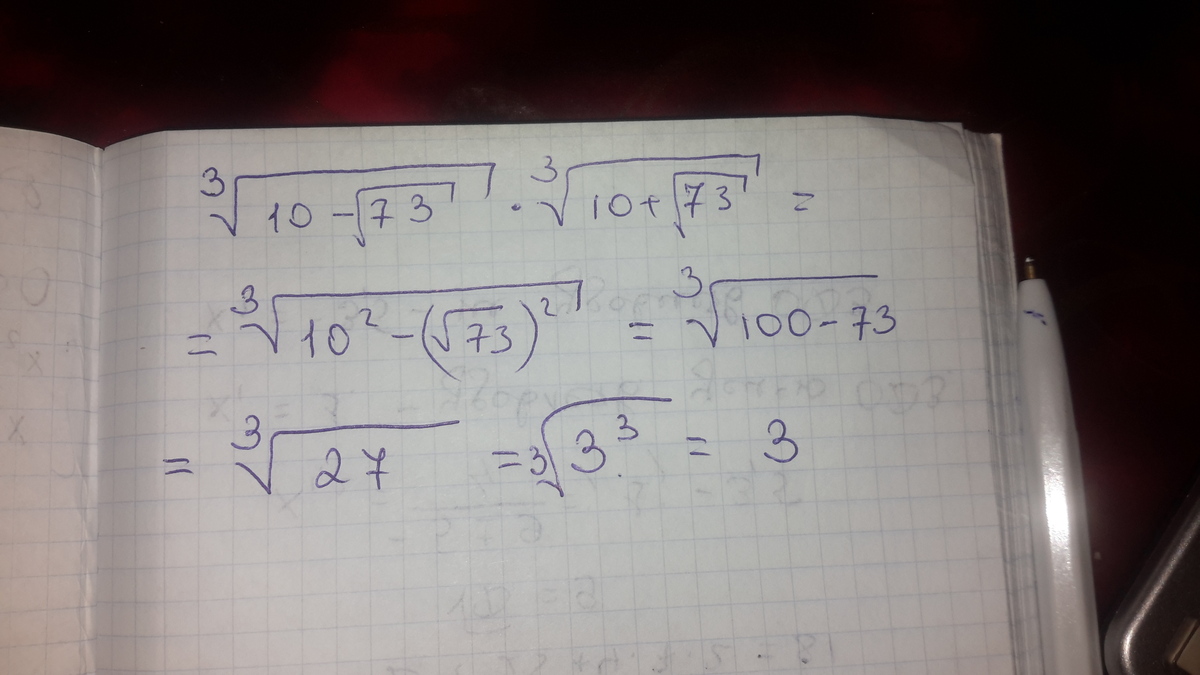 ∛(10 - √73) · ∛(10 + √73) =
= ∛(10² - (√73)²) = ∛(100 - 73)
= ∛27 = ∛(3³) = 3